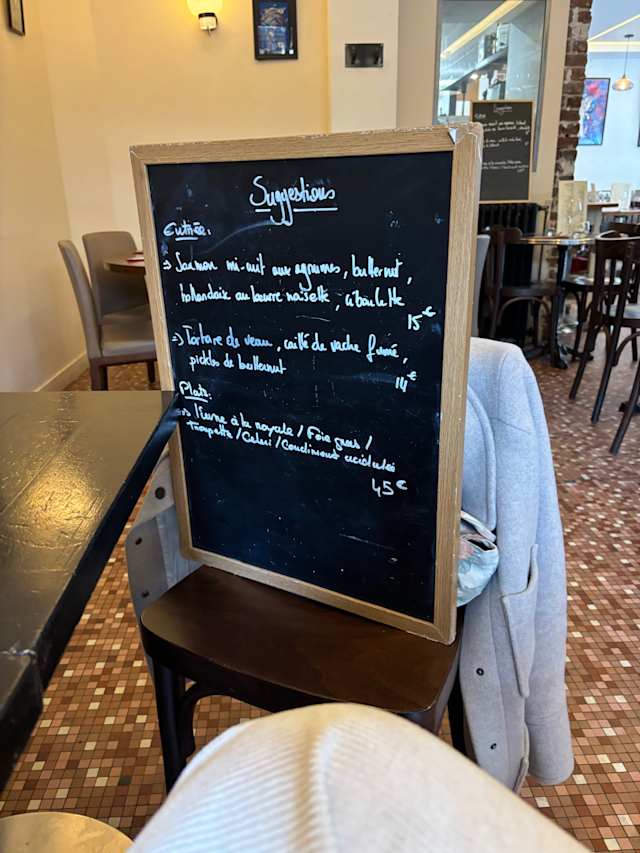 Suggestions
Entrée:
→ Saumon mi-cuit aux agrumes, butternut,
hollandaise au beurre noisette, ciboulette
15€
→ Tartare de veau, caillé de vache fumé,
pickles de butternut
14€
Plats:
→ Lièvre à la royale / Foie gras /
Trompette / Céleri / Condiment acidulé
45€
Suggestions